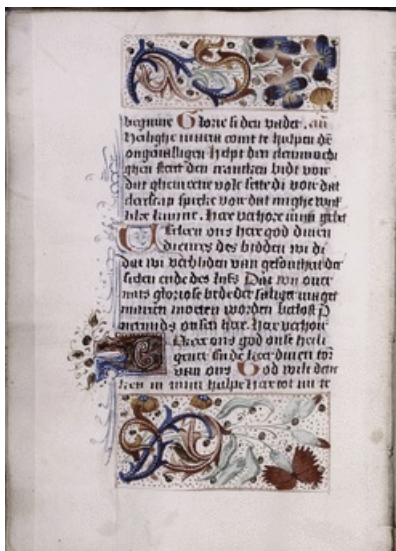 beginne Glorie si den vader . añ
heilighe maria comt te hulpen dē
ongeualligen helpt den cleinmoedi
ghen sterct den crancken bidt voir
dat ghemeene volc sette di voir dat
clerscap spreke voir dat innighe wijf
like kunne . Here verhore mijn gebet
Verleen ons here god dinen
dieneres des bidden wi di
dat wi verbliden van gesontheit der
sielen ende des lijfs Dat wi ouer
mits gloriose bede der saliger maget
marien moeten worden verlost
onsen here. Here verhoir
ons god onse heil
geuer Ende keer dinen tor
van ons God wilt denc
ken in mijn hulpe Here tot mi te